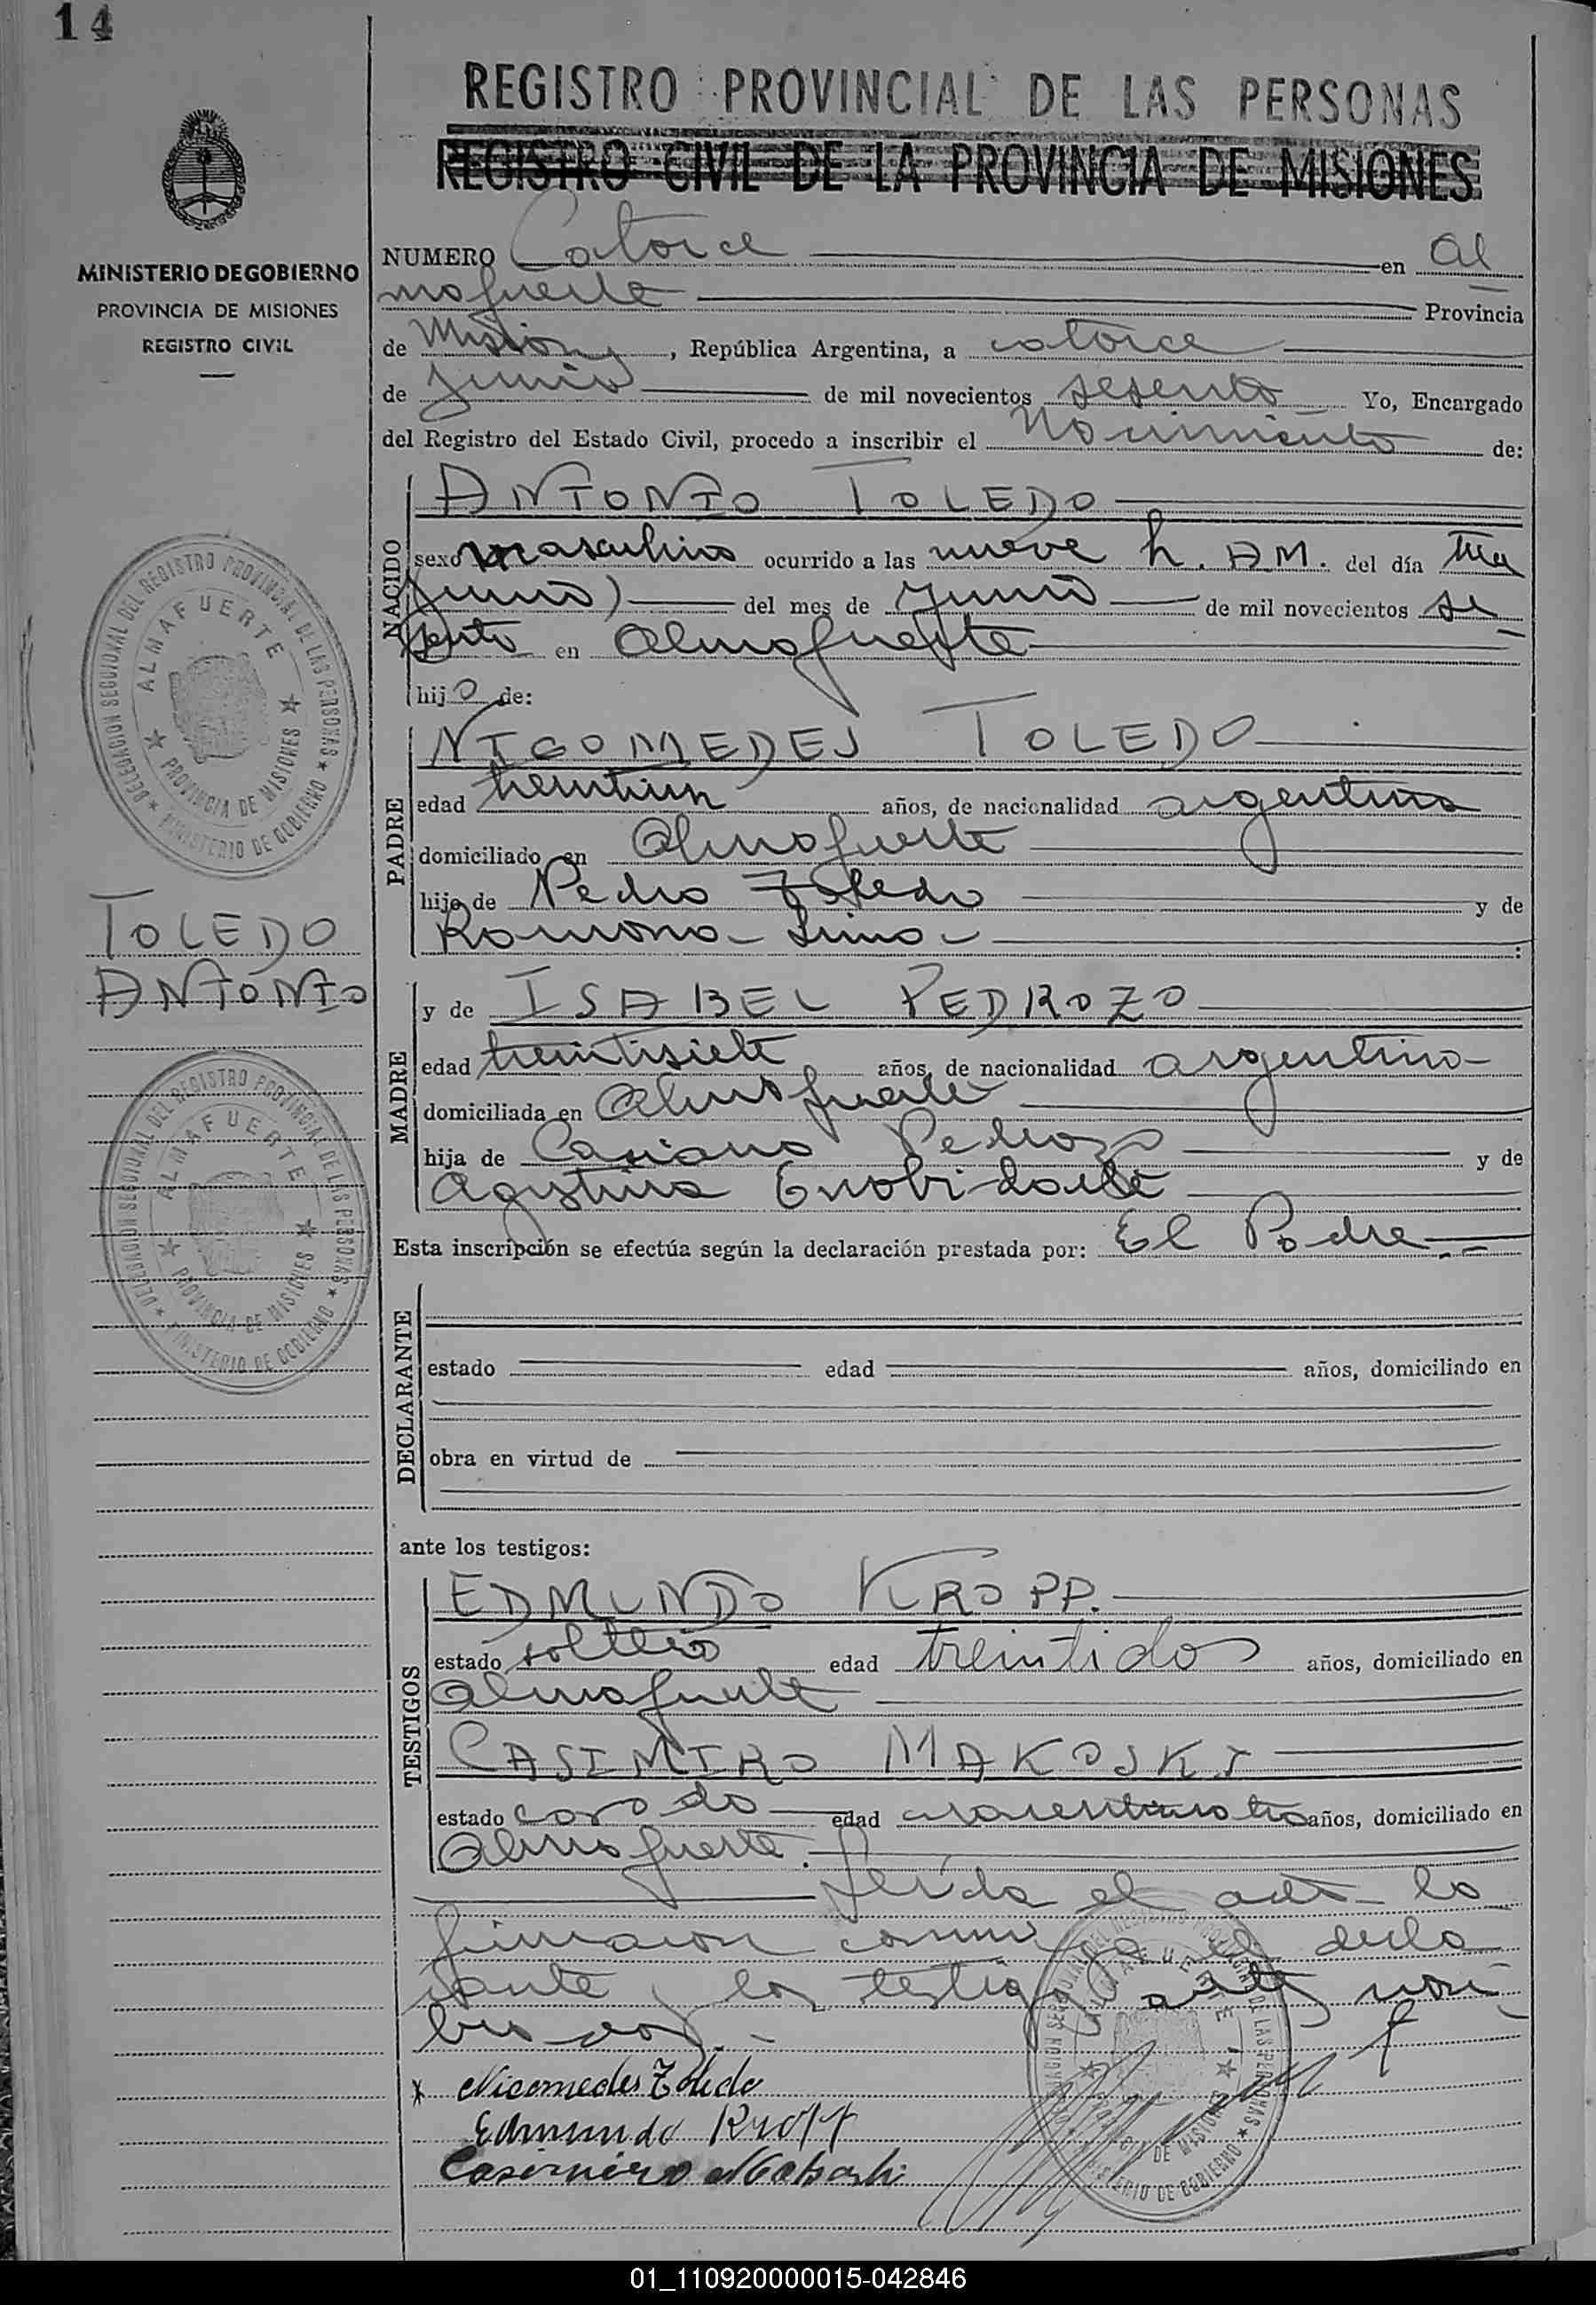 14
REGISTRO PROVINCIAL DE LAS PERSONAS
REGISTRO CIVIL DE LA PROVINCIA DE MISIONES
MINISTERIO DE GOBIERNO
PROVINCIA DE MISIONES
REGISTRO CIVIL
NUMERO Catorce en Al
mafuerte Provincia
de Misiones, República Argentina, a catorce
de junio de mil novecientos sesenta Yo, Encargado
del Registro del Estado Civil, procedo a inscribir el Nacimiento de:
NACIDO
ANTONIO TOLEDO
sexo masculino ocurrido a las nueve h. A.M. del día tres
(junio) del mes de junio de mil novecientos se
senta en Almafuerte
hijo de:
PADRE
NICOMEDES TOLEDO
edad años, de nacionalidad argentina
domiciliado en Almafuerte
hijo de Pedro Toledo y de
Ramona
MADRE
y de ISABEL PEDROZO
edad treintisiete años, de nacionalidad argentina
domiciliada en Almafuerte
hija de Casiano Pedrozo y de
Agustina
Esta inscripción se efectúa según la declaración prestada por: El Padre.-
DECLARANTE
estado edad años, domiciliado en
obra en virtud de
ante los testigos:
TESTIGOS
EDMUNDO KROPP.
estado soltero edad treintidos años, domiciliado en
Almafuerte
CASIMIRO MAKOSKI
estado casado edad años, domiciliado en
Almafuerte.
Leída el acta la
firmaron conmigo el decla
rante y los testigos antes nom
brados.-
x Nicomedes Toledo
Edmundo Kropp
Casimiro Makoski
TOLEDO
ANTONIO
DELEGACION SECCIONAL DEL REGISTRO PROVINCIAL DE LAS PERSONAS
MINISTERIO DE GOBIERNO
ALMAFUERTE
PROVINCIA DE MISIONES
DELEGACION SECCIONAL DEL REGISTRO PROVINCIAL DE LAS PERSONAS
MINISTERIO DE GOBIERNO
ALMAFUERTE
PROVINCIA DE MISIONES
01_110920000015-042846